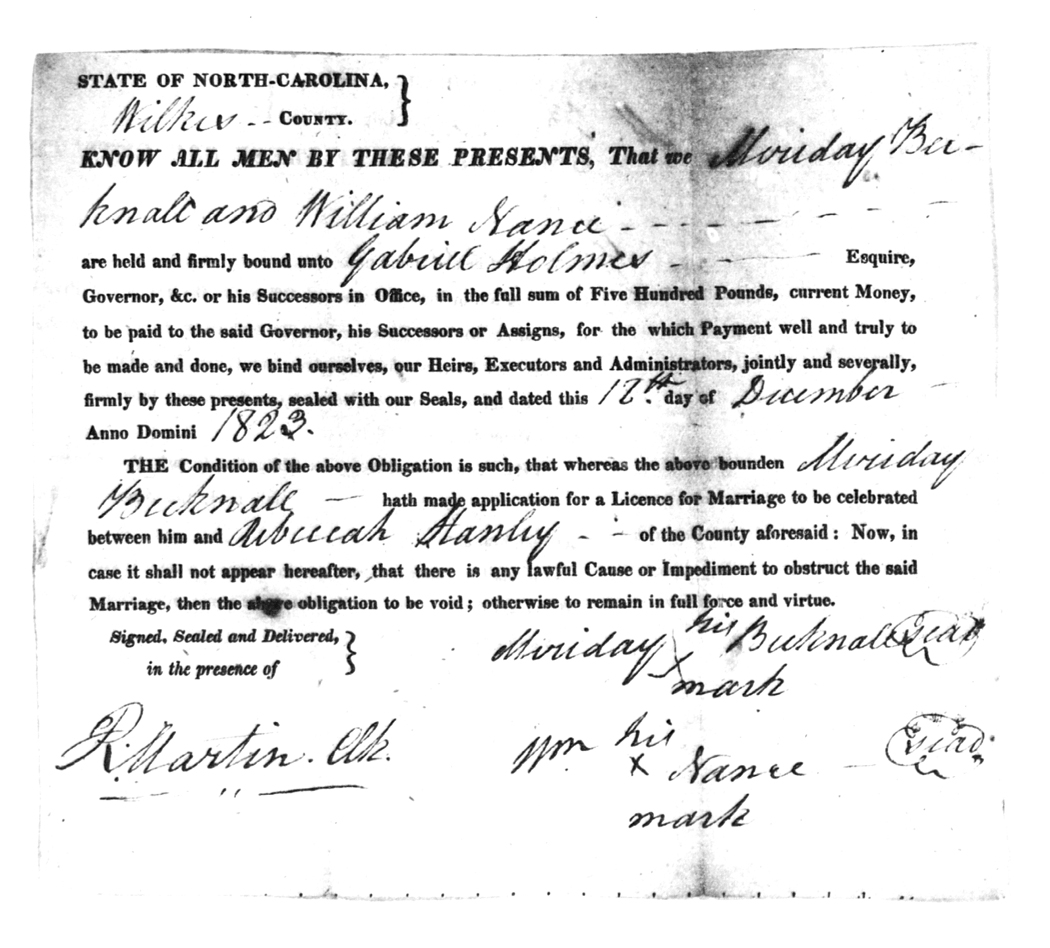 STATE OF NORTH-CAROLINA, }
Wilkes -- COUNTY. }
KNOW ALL MEN BY THESE PRESENTS, That we Moriday Buc-
knall and William Nance - - - - - -
are held and firmly bound unto Gabriel Holmes - - - Esquire,
Governor, &c. or his Successors in Office, in the full sum of Five Hundred Pounds, current Money,
to be paid to the said Governor, his Successors or Assigns, for the which Payment well and truly to
be made and done, we bind ourselves, our Heirs, Executors and Administrators, jointly and severally,
firmly by these presents, sealed with our Seals, and dated this 12th day of December -
Anno Domini 1823.
THE Condition of the above Obligation is such, that whereas the above bounden Moriday
Bucknall - hath made application for a Licence for Marriage to be celebrated
between him and Rebeccah Stanley - - of the County aforesaid : Now, in
case it shall not appear hereafter, that there is any lawful Cause or Impediment to obstruct the said
Marriage, then the above obligation to be void ; otherwise to remain in full force and virtue.
Signed, Sealed and Delivered, }
in the presence of }
Moriday his x mark Bucknall Seal
R. Martin. Clk.
Wm his x mark Nance - Seal